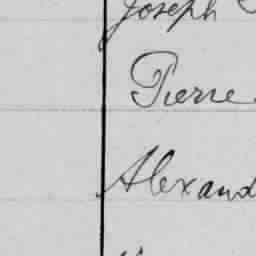 Joseph
Pierre
Alexand